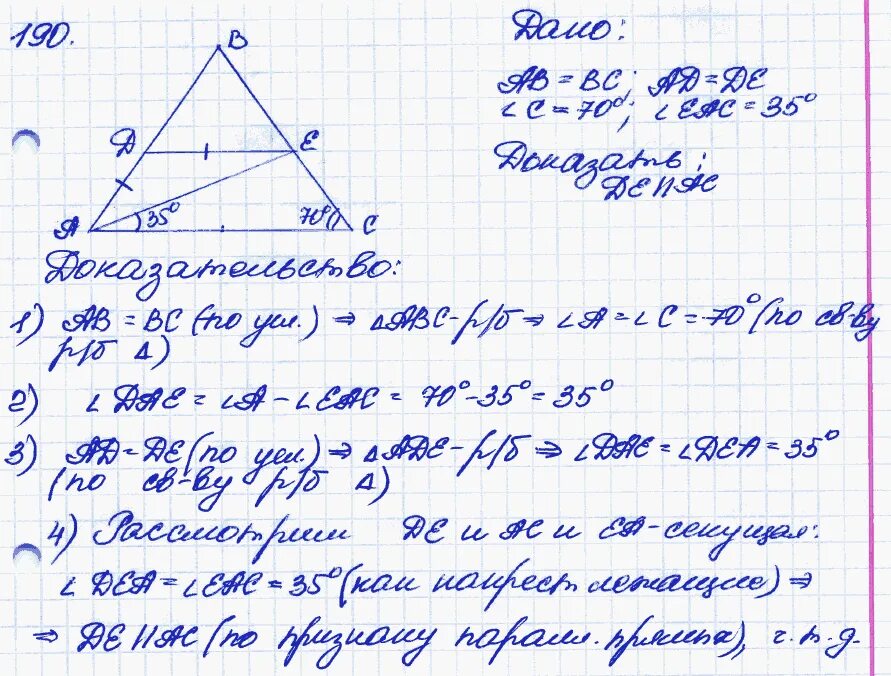 190.
Дано:
AB = BC; AD = DE
∠C = 70°; ∠EAC = 35°
Доказать:
DE || AC
B
D
E
A
35°
70°
C
Доказательство:
1) AB = BC (по усл.) ⇒ △ABC - р/б ⇒ ∠A = ∠C = 70° (по св-ву
р/б △)
2) ∠DAE = ∠A - ∠EAC = 70° - 35° = 35°
3) AD = DE (по усл.) ⇒ △ADE - р/б ⇒ ∠DAE = ∠DEA = 35°
(по св-ву р/б △)
4) Рассмотрим DE и AC и EA - секущая:
∠DEA = ∠EAC = 35° (как накрест лежащие) ⇒
⇒ DE || AC (по признаку паралл. прямых), ч.т.д.